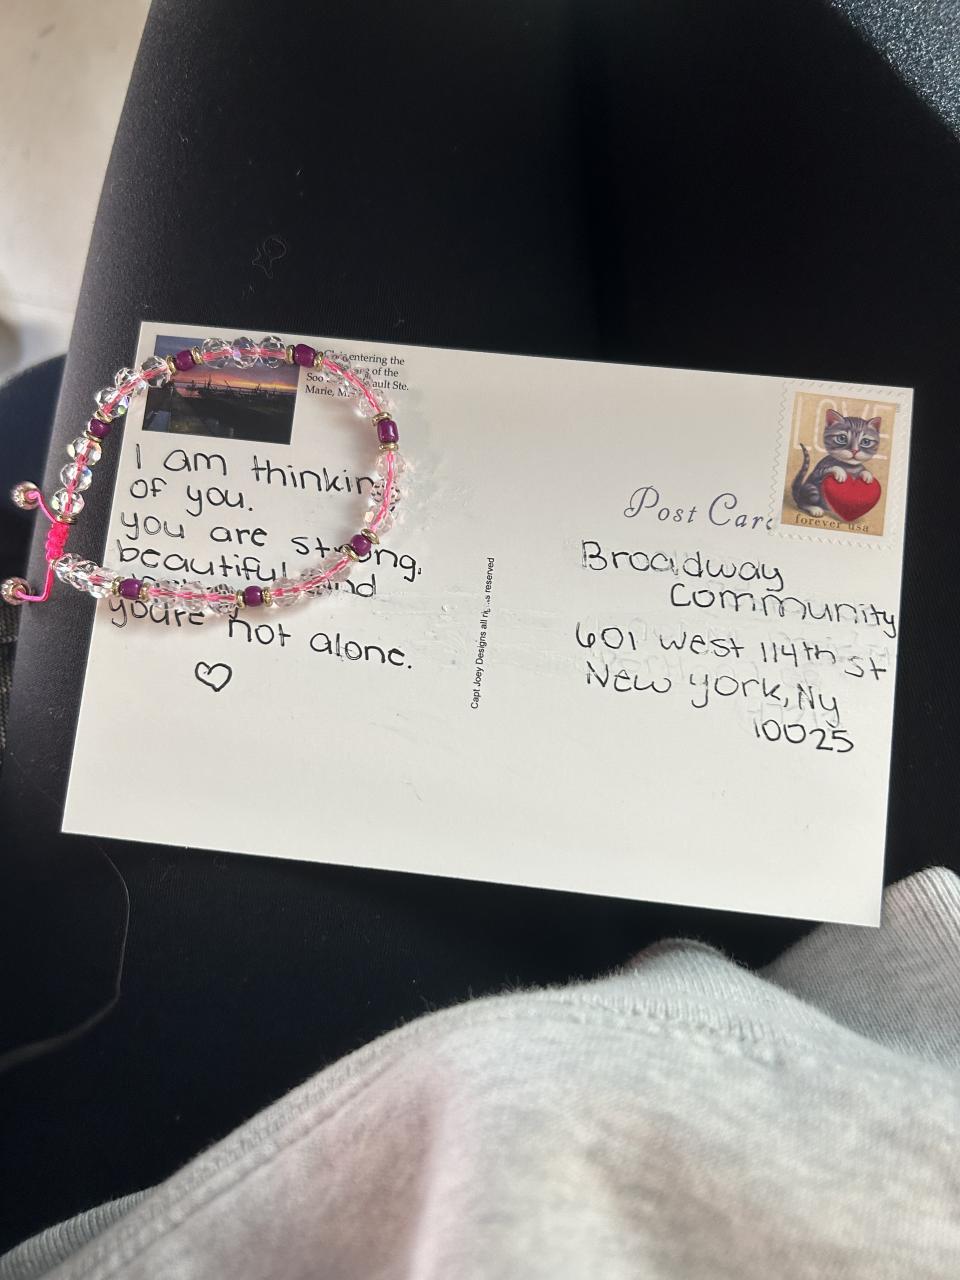 entering the
of the
Soo ault Ste.
Marie, M
I am thinkin
of you.
you are strong.
beautiful
and
you're not alone.
LOVE
forever usa
Post Card
Capt Joey Designs all rights reserved
Broadway
Community
601 West 114th St
New York, Ny
10025